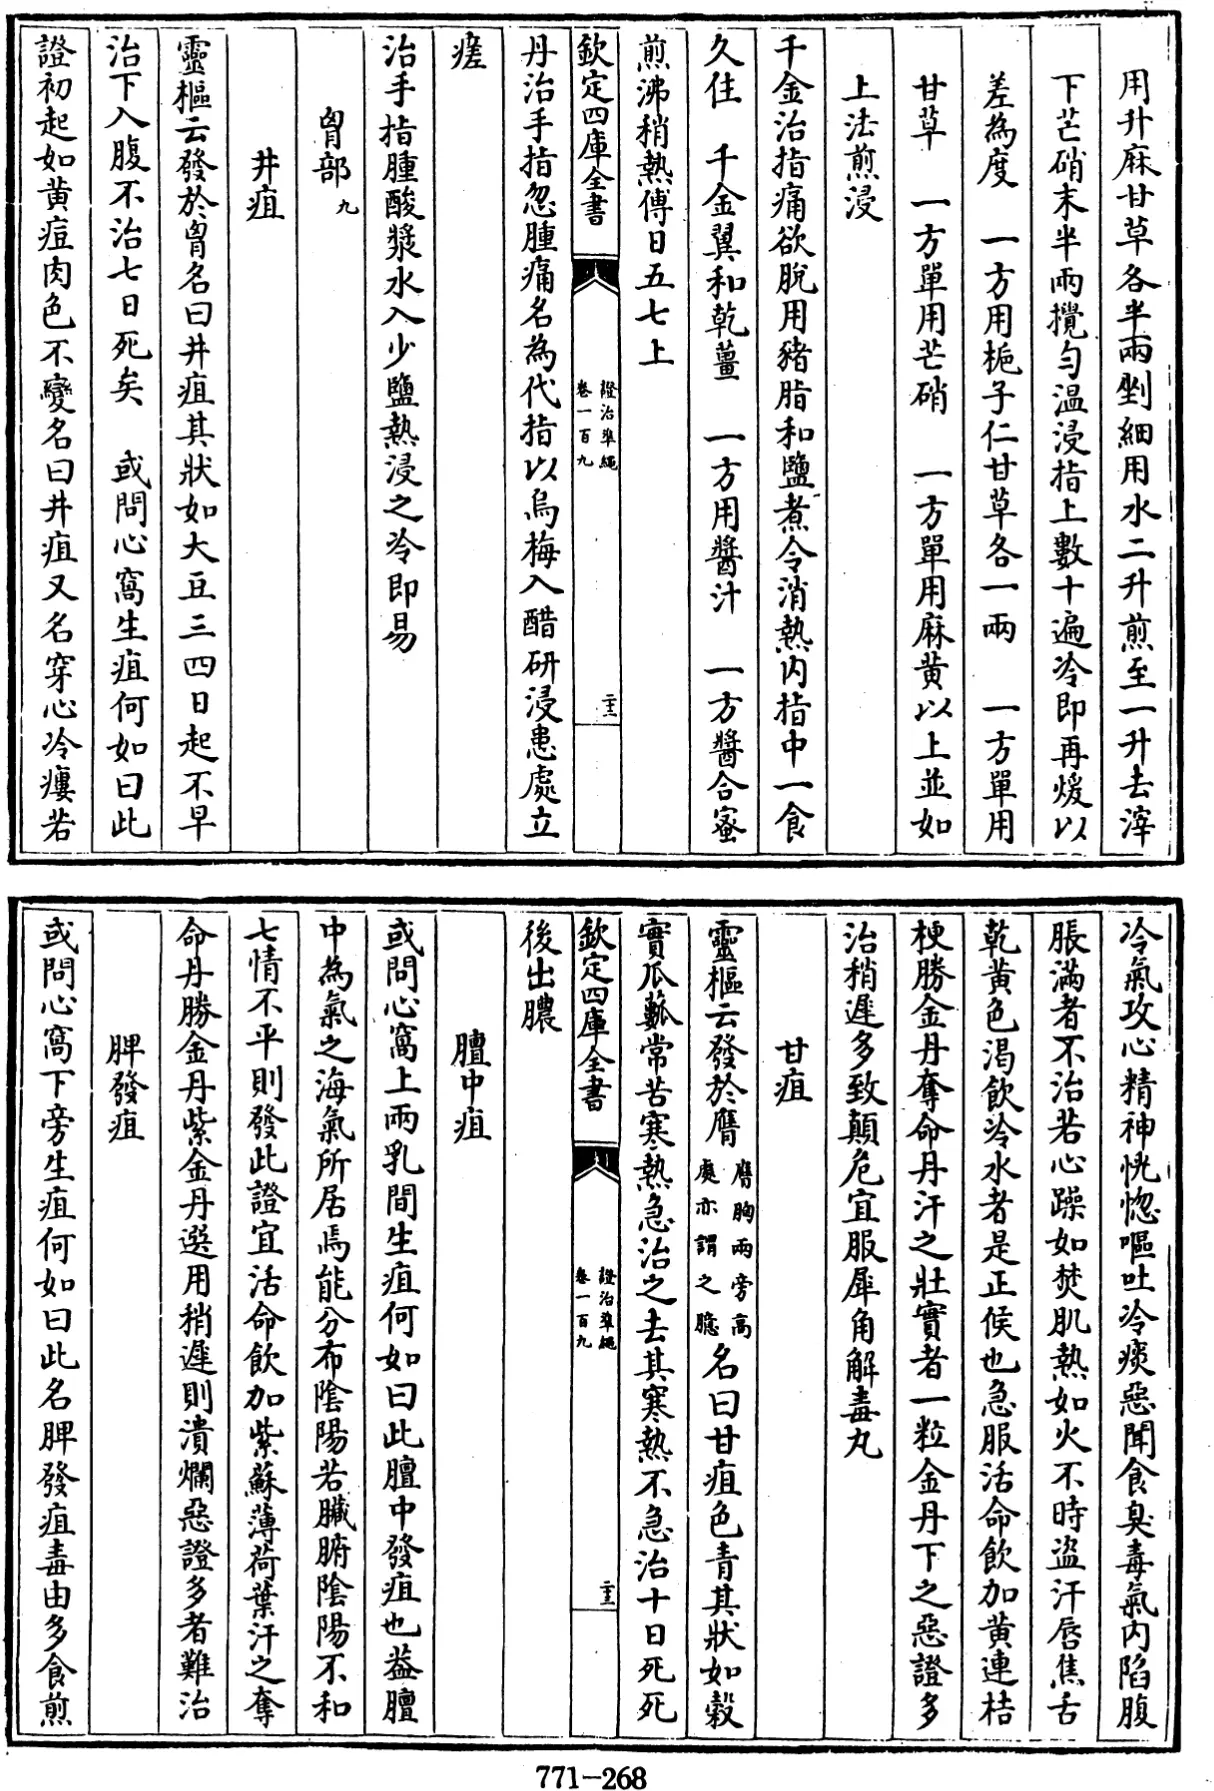 用升麻甘草各半兩剉細用水二升煎至一升去滓
下芒硝末半兩攪勻温浸指上數十遍冷即再煖以
差為度　一方用梔子仁甘草各一兩　一方單用
甘草　一方單用芒硝　一方單用麻黄以上並如
上法煎浸
千金治指痛欲脫用豬脂和鹽煮令消熱内指中一食
久住　千金翼和乾薑　一方用醬汁　一方醬合蜜
煎沸稍熱傅日五七上
欽定四庫全書
證治準繩
卷一百九
丹治手指忽腫痛名為代指以烏梅入醋研浸患處立
瘥
治手指腫酸漿水入少鹽熱浸之冷即易
胷部九
井疽
靈樞云發於胷名曰井疽其狀如大豆三四日起不早
治下入腹不治七日死矣　或問心窩生疽何如曰此
證初起如黄痘肉色不變名曰井疽又名穿心冷瘻若
冷氣攻心精神恍惚嘔吐冷痰惡聞食臭毒氣内陷腹
脹滿者不治若心躁如焚肌熱如火不時盜汗唇焦舌
乾黄色渴飲冷水者是正候也急服活命飲加黄連桔
梗勝金丹奪命丹汗之壯實者一粒金丹下之惡證多
治稍遲多致顛危宜服犀角解毒丸
甘疽
靈樞云發於膺膺胸兩旁高處亦謂之臆名曰甘疽色青其狀如穀
實瓜蓏常苦寒熱急治之去其寒熱不急治十日死死
欽定四庫全書
證治準繩
卷一百九
後出膿
膻中疽
或問心窩上兩乳間生疽何如曰此膻中發疽也葢膻
中為氣之海氣所居焉能分布陰陽若臟腑陰陽不和
七情不平則發此證宜活命飲加紫蘇薄荷葉汗之奪
命丹勝金丹紫金丹選用稍遲則潰爛惡證多者難治
脾發疽
或問心窩下旁生疽何如曰此名脾發疽毒由多食煎
771-268